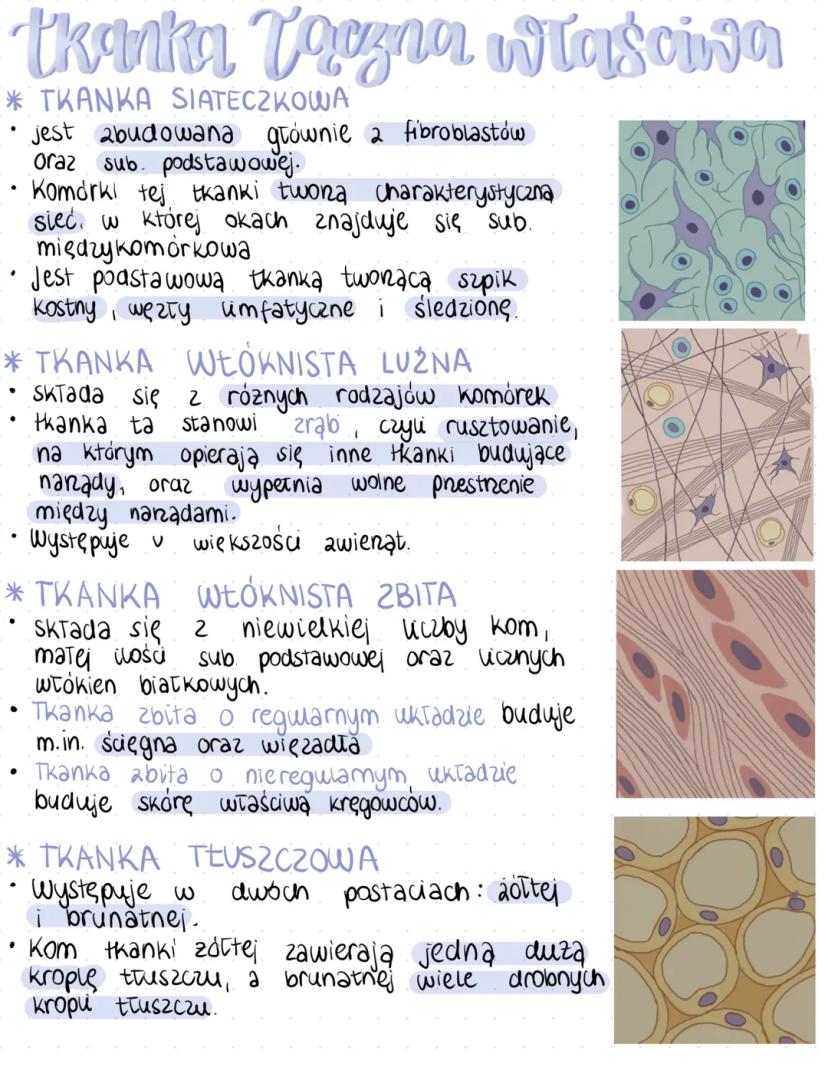 tkanka łączna właściwa
* TKANKA SIATECZKOWA
• jest zbudowana głównie z fibroblastów
oraz sub. podstawowej.
• Komórki tej tkanki tworzą charakterystyczną
sieć, w której okach znajduje się sub.
międzykomórkowa
• Jest podstawową tkanką tworzącą szpik
kostny, węzły limfatyczne i śledzionę.
* TKANKA WŁÓKNISTA LUŹNA
• składa się z różnych rodzajów komórek
• tkanka ta stanowi zrąb, czyli rusztowanie,
na którym opierają się inne tkanki budujące
narządy, oraz wypełnia wolne przestrzenie
między narządami.
• Występuje u większości zwierząt.
* TKANKA WŁÓKNISTA ZBITA
• składa się z niewielkiej liczby kom,
małej ilości sub. podstawowej oraz licznych
włókien białkowych.
• Tkanka zbita o regularnym układzie buduje
m.in. ścięgna oraz więzadła
• Tkanka zbita o nieregularnym układzie
buduje skórę właściwą kręgowców.
* TKANKA TŁUSZCZOWA
• Występuje w dwóch postaciach: żółtej
i brunatnej.
• Kom tkanki żółtej zawierają jedną dużą
kroplę tłuszczu, a brunatnej wiele drobnych
kropli tłuszczu.